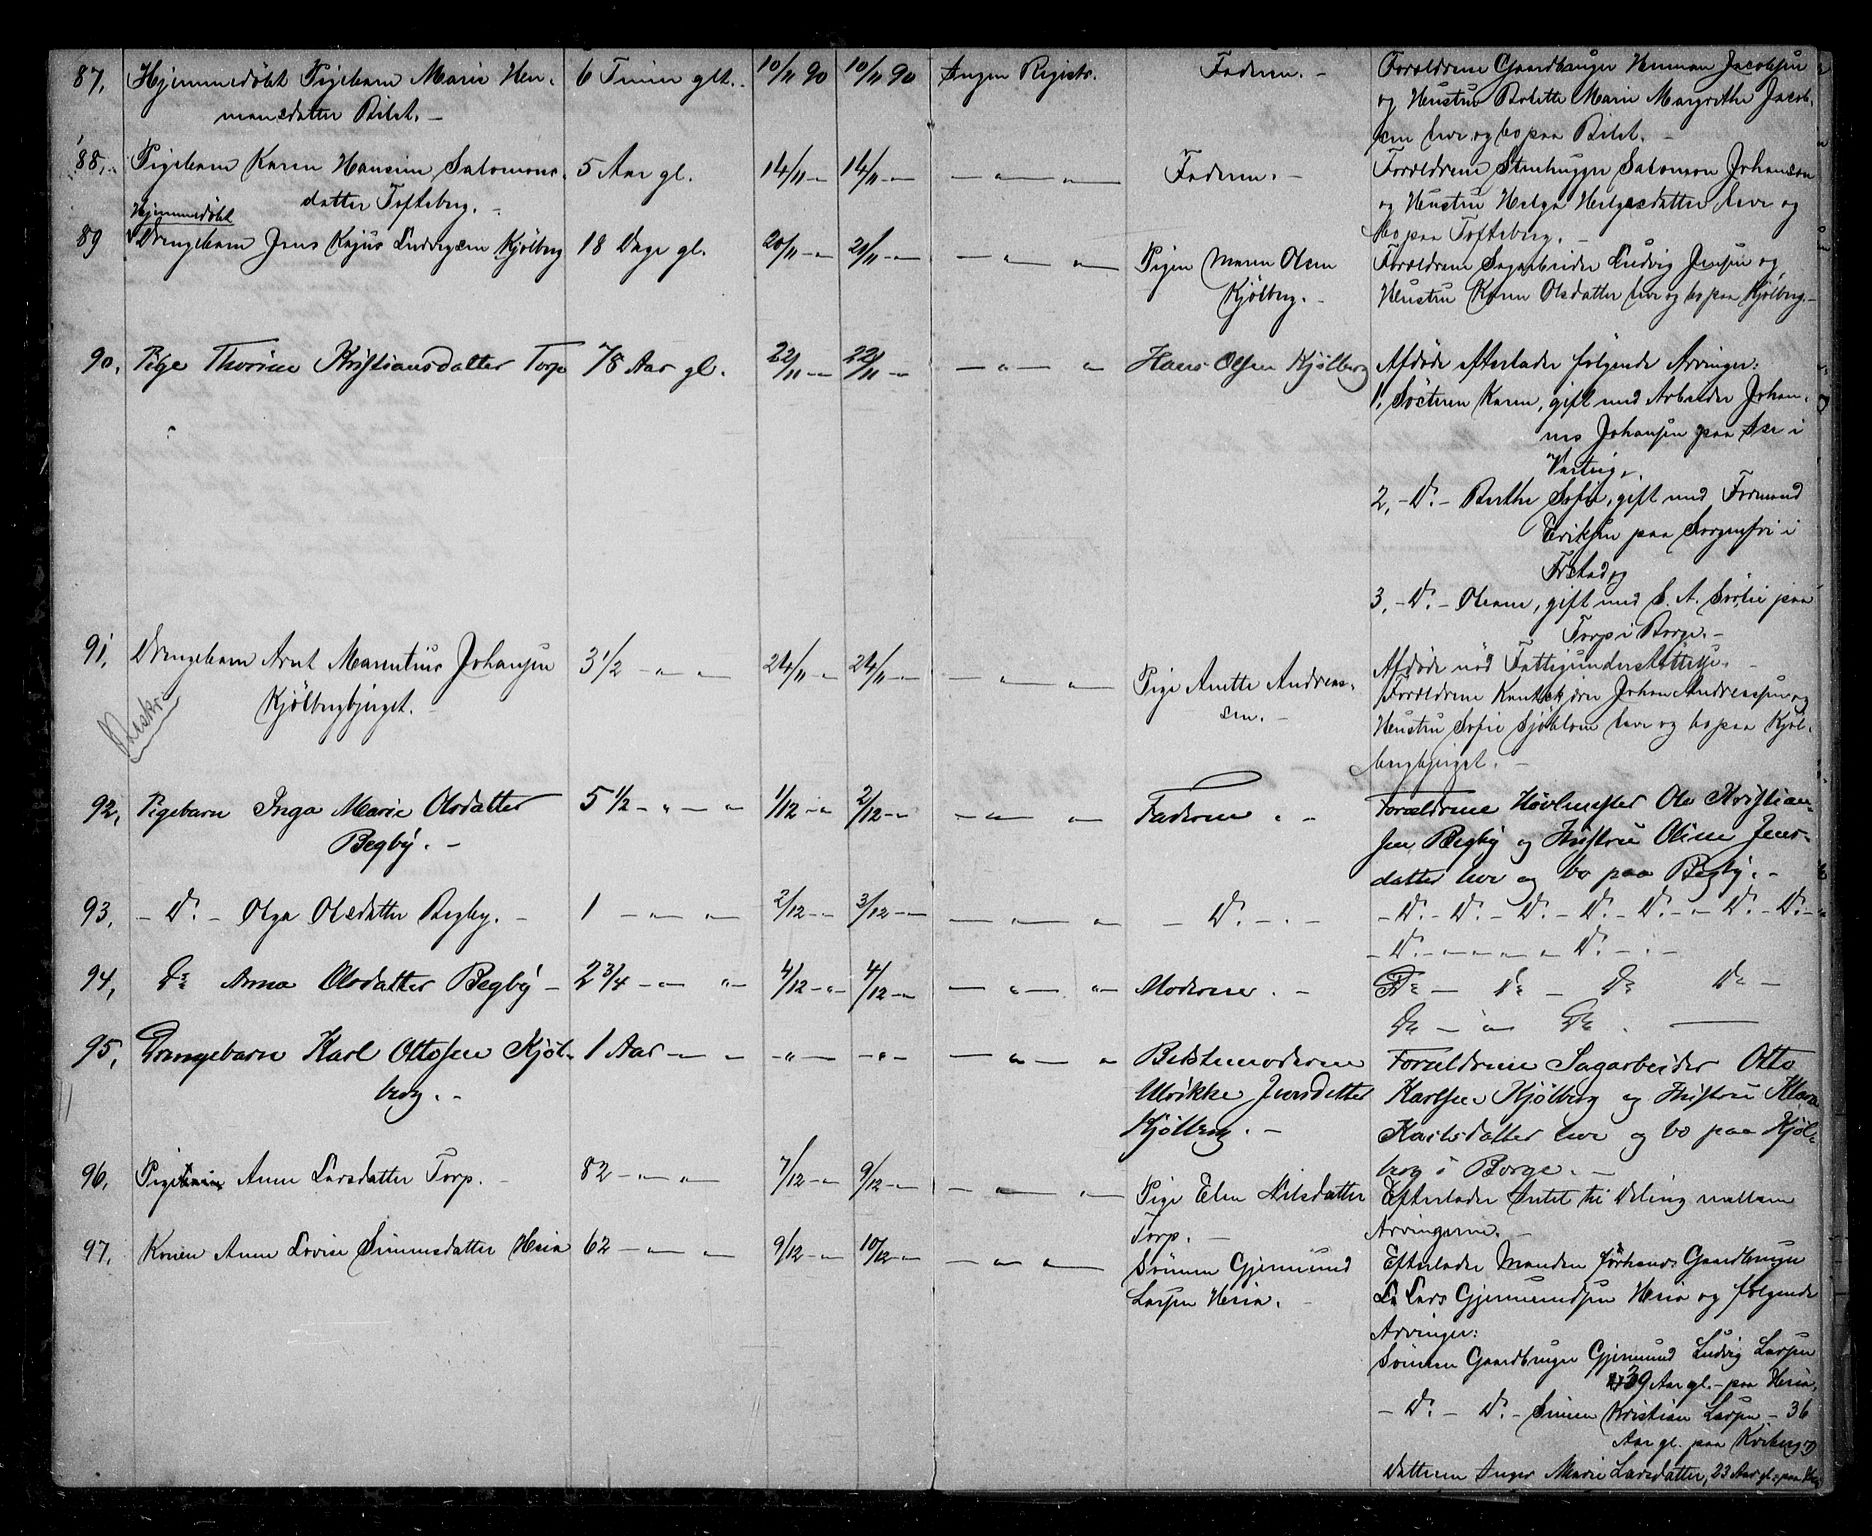 87, Hjemmedøbt Pigebarn Marie Her- 6 Timer glt. 10/11 90 10/11 90 Ingen Registr. Faderen. - Forældrene Gaardbruger Herman Jacobsen
mansdatter Bilet. - og Hustru Bolette Marie Margrethe Jacob-
sen leve og bo paa Bilet. -
88, Pigebarn Karen Hansine Salomons- 5 Aar gl. 14/11 - " - 14/11 - " - — " — Faderen. - Forældrene Stenhugger Salomon Johansen
datter Tofteberg. - og Hustru Helga Helgesdatter leve og
bo paa Tofteberg. -
Hjemmedøbt
89 Drengebarn Jens Kajus Ludvigsen Kjølberg 18 Dage gl. 20/11 - " - 21/11 - " - — " — " — Pigen Maren Olsen Forældrene Sagarbeider Ludvig Jensen og
Kjølberg. - Hustru Karen Olsdatter leve og bo paa Kjølberg. -
90, Pige Thorine Kristiansdatter Torp 78 Aar gl. 22/11 - " - 22/11 - " - — " — " Hans Olsen Kjølberg Afdøde efterlader følgende Arvinger:
1, Søsteren Karen, gift med Arbeider Johan-
nes Johansen paa
Varteig,
2, - Do. - Berthe Sofie, gift med Formand
Eriksen paa Sorgenfri i
3, - Do. - Oleane, gift med S. A. Sørlie paa
Torp i Borge. -
Afdøde nød Fattigunderstøttelse. -
91, Drengebarn Arnt Marentius Johansen 3 1/2 - " - " 24/11 - " - 24/11 - " - — " — " — Pige Anette Andreas- Forældrene Johan Andreassen og
Kjølbergbjerget. - sen. - Hustru Sofie Sjøblom leve og bo paa Kjøl-
bergbjerget. -
92, Pigebarn Inga Marie Olsdatter 5 1/2 - " - " 1/12 - " 2/12 - " - — " — " Faderen. - Forældrene Høvlmester Ole Kristian-
Begby. - sen Begby og Hustru Oline Jens-
datter leve og bo paa Begby. -
93, - Do. - Olga Olsdatter Begby. - 1 - " - " 2/12 - " - 3/12 - " - — " — " - Do. - - - Do. - Do. - Do. - Do. - Do. - " - Do. - Do. -
- Do. - " - " - Do. - -
94, Do Anna Olsdatter Begby - 2 3/4 - " - " - 4/12 - " - 4/12 - " - — " — " — Moderen. - Do - Do - Do Do -
Do - " - Do. —
95, Drengebarn Karl Ottosen Kjøl- 1 Aar - " - " - " - - " - — " — " Bedstemoderen Forældrene Sagarbeider Otto
berg. - Ulrikke Jensdatter Karlsen Kjølberg og Hustru Klara
Kjølberg. - Karlsdatter leve og bo paa Kjøl-
berg i Borge. -
96, Pige Anne Larsdatter Torp. - 82 - " - " 7/12 - " 9/12 - " - — " — " Pige Elen Nilsdatter Efterlader Intet til Deling mellem
Torp. - Arvingerne. -
97, Konen Anne Lovise Simensdatter Heia 62 - " - " 9/12 - " - 10/12 - " - — " — " Sønnen Gjermund Efterlader Manden forhenv. Gaardbruger
Larsen Heia. - Lars Gjermundsen Heia og følgende
Arvinger:
Sønnen Gaardbruger Gjermund Ludvig Larsen
39 Aar gl. - paa Heia,
- Do. - Do. - Simen Kristian Larsen - 36
Aar gl. paa
Datteren Inger Marie Larsdatter, 23 Aar gl., paa